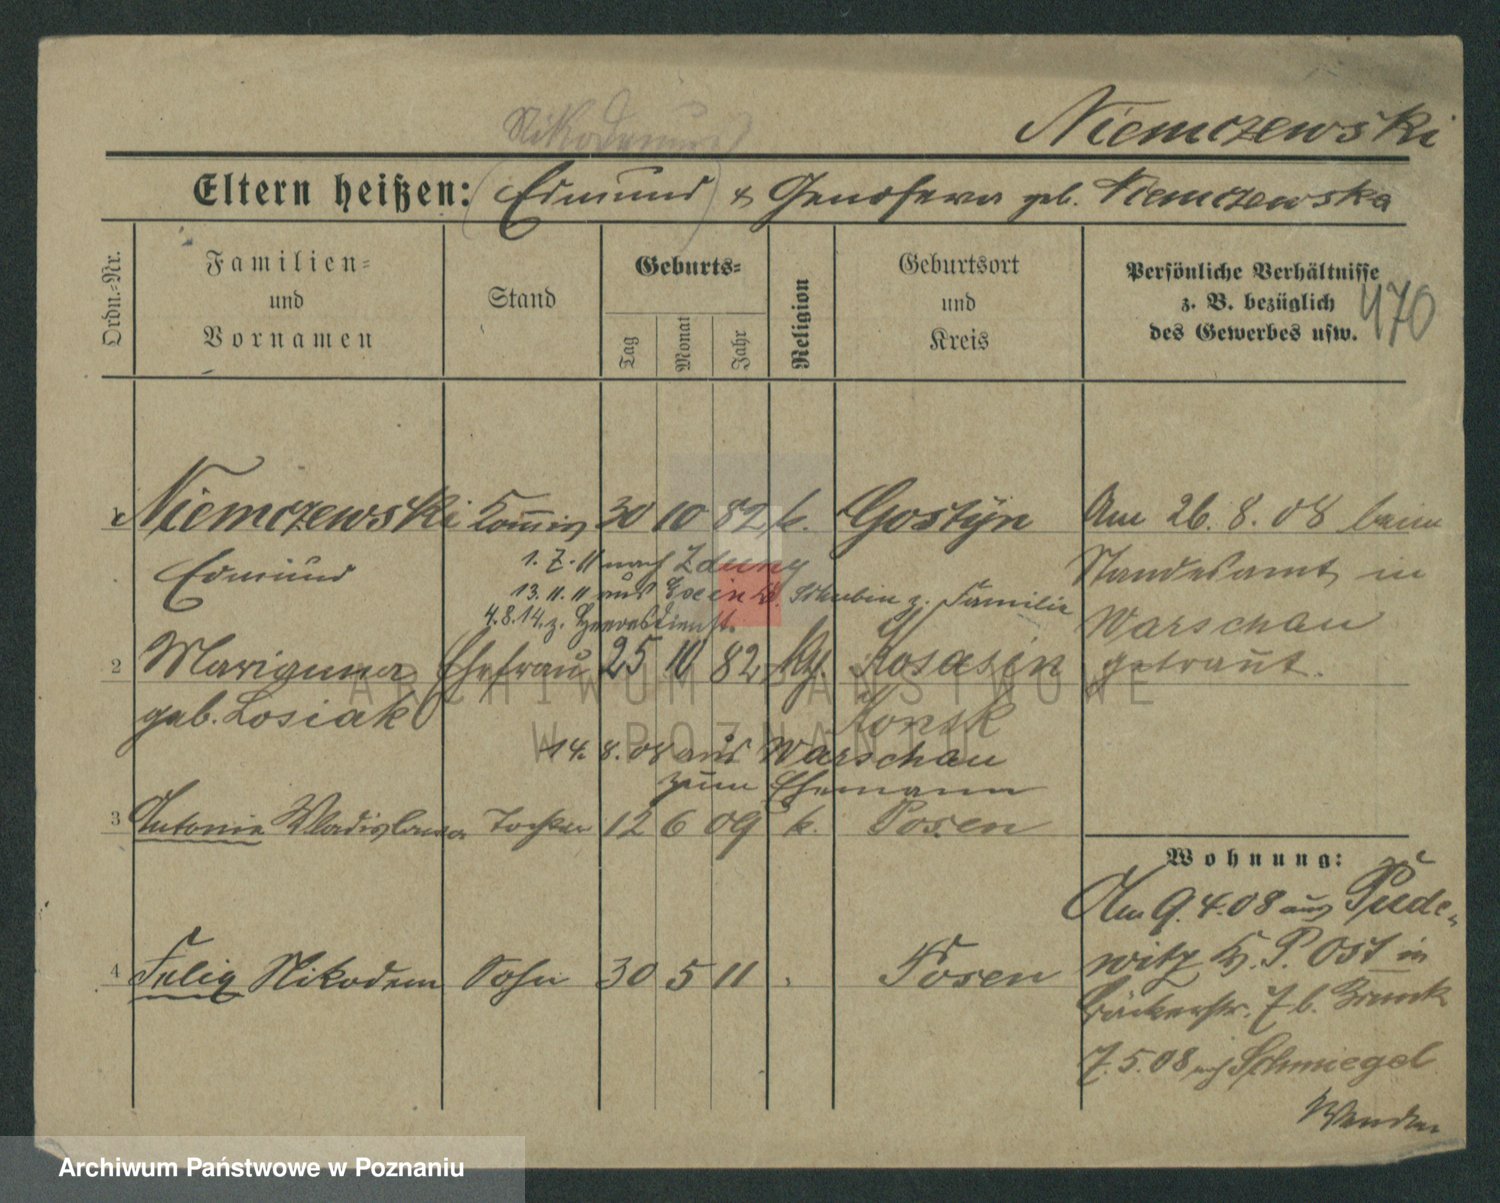 Niemczewski
Nikodemus
Eltern heißen: (Edmund) & Genofeva geb. Niemczewska
Ordn.-Nr.
Familien-
und
Vornamen
Stand
Geburts-
Tag
Monat
Jahr
Religion
Geburtsort
und
Kreis
Persönliche Verhältnisse
z. B. bezüglich
des Gewerbes usw.
470
1 Niemczewski Kommis 30 10 82 k. Gostyn
Edmund
1. 7. 11 nach Zduny
13. 11. 11 aus Exin Kr. Schubin z. Familie
4.8.14. z. Heeresdienst.
2 Marianna Ehefrau 25 10 82
geb. Losiak Konsk
14. 8. 08 aus Warschau
zum Ehemann
3 Antonie Wladislawa Tochter 12 6 09 k. Posen
4 Felix Nikodem Sohn 30 5 11 Posen
Am 26. 8. 08 beim
Standesamt in
Warschau
getraut.
Wohnung:
Am 9. 4. 08 aus Pude-
witz Kr. P. Ost in
Bäckerstr. 7 b.
7. 5. 08 nach Schmiegel
Wenden
ARCHIWUM PAŃSTWOWE
W POZNANIU
Archiwum Państwowe w Poznaniu